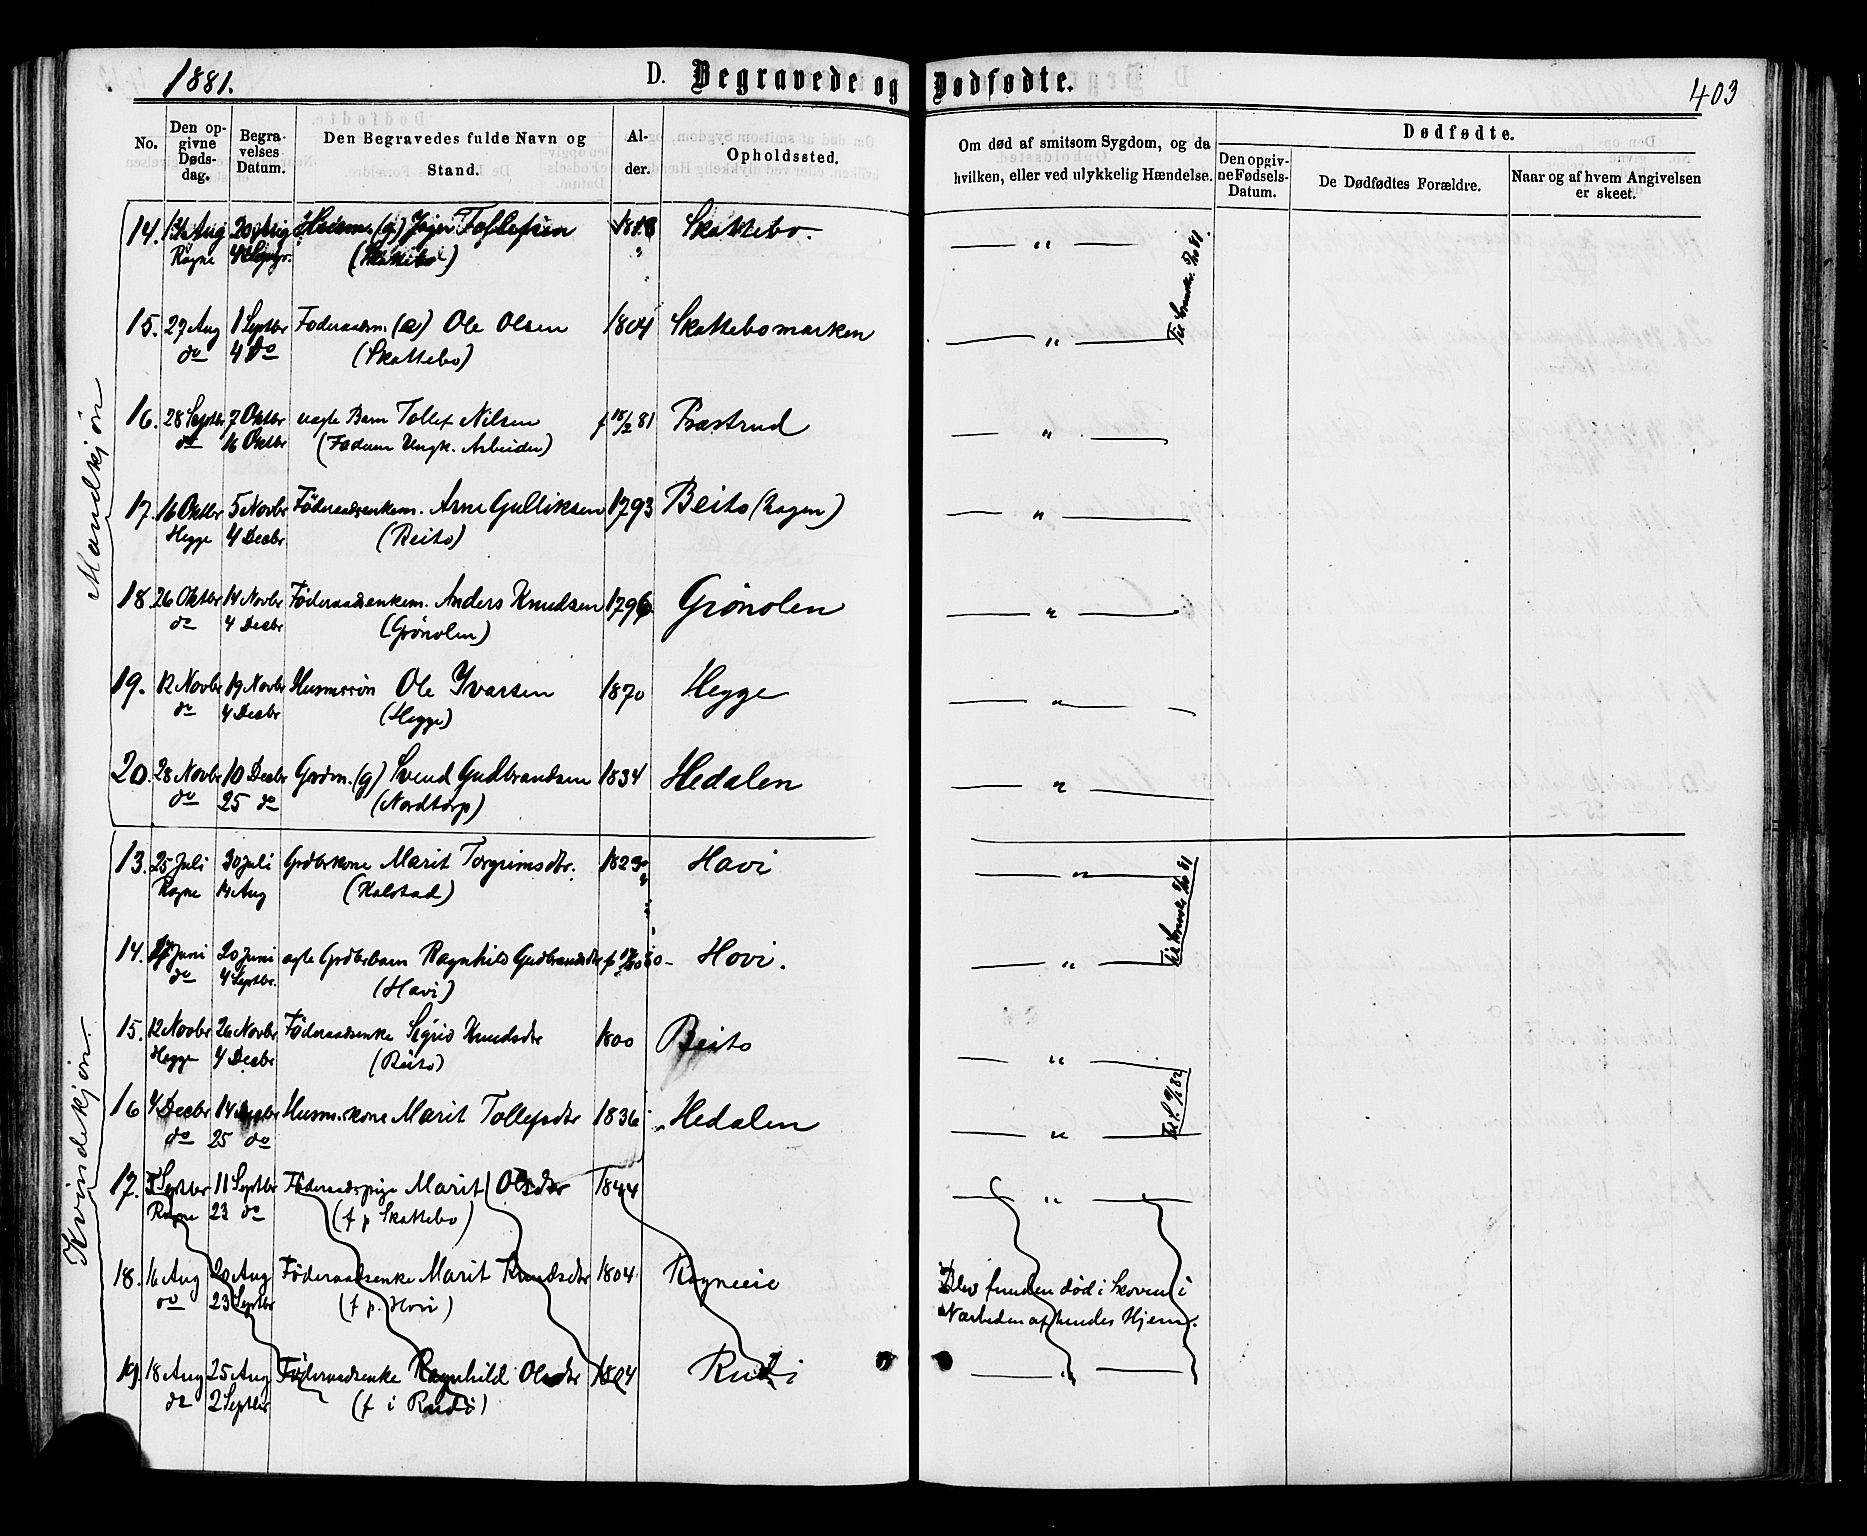 1881.
D. Begravede og Dødfødte.
403
No.
Den opgivne Dødsdag.
Begravelses Datum.
Den Begravedes fulde Navn og Stand.
Alder.
Opholdssted.
Om død af smitsom Sygdom, og da hvilken, eller ved ulykkelig Hændelse.
Dødfødte.
Den opgivne Fødsels-Datum.
De Dødfødtes Forældre.
Naar og af hvem Angivelsen er skeet.
Mandkjøn
14. Aug 20 Aug (g) Tollefsen Skattebo. — " —
Rogne 4 (Skattebo)
15. 27 Aug 1 Septbr Føderaadsm. (e) Ole Olsen 1804 Skattebomarken — " —
do 4 do (Skattebo)
16. 28 Septbr 7 Oktbr uægte Barn Tollef Nilsen f 18/2 81 Præstrud — " —
do 16 Oktbr (Faderen Ungk. Arbeider)
17. 16 Oktbr 5 Novbr Føderaadsenkem. Arne Gulliksen 1793 Beito (hagen) — " —
Hegge 4 Decbr (Beito)
18. 26 Oktbr 14 Novbr Føderaadsenkem. Anders Knudsen 1796 Grönolen — " —
do 4 Decbr (Grönolen)
19. 12 Novbr 19 Novbr Husmssön Ole Ivarsen 1870 Hegge — " —
do 4 Decbr (Hegge)
20. 28 Novbr 10 Decbr Grdm. (g) Svend Gudbrandsen 1834 Hedalen — " —
do 25 do (Nordtorp)
Kvindekjøn.
13. 25 Juli 30 Juli Grdbrkone Marit Torgrimsdtr. Havi — " —
Rogne 14 Aug (Halstad)
14. Juni 20 Juni ægte Grdbrbarn Ragnhild Gudbrandsdtr Hovi. — " —
do 4 Septbr. (Havi)
15. 12 Novbr 26 Novbr Føderaadsenke Sigrid Knudsdtr 1800 Beito — " —
Hegge 4 Decbr (Beito)
16 4 Decbr 14 Decbr Husm.kone Marit Tollefsdtr 1836 Hedalen — " —
do 25 do
17. Septbr 11 Septbr Føderaadspige Marit Olsdtr 1844 — " —
Rogne 23 do (f p Skattebo)
18. 16 Aug 20 Aug Føderaadsenke Marit Knudsdtr 1804 Rogneeie Blev funden død i Skoven i
do 23 Septbr (f p. Hovi) Nærheden af hendes Hjem.
19 18 Aug 25 Aug Føderaadsenke Ragnhild Olsdtr 1804 Rudi — " —
do 2 Septbr (f i Rudi)